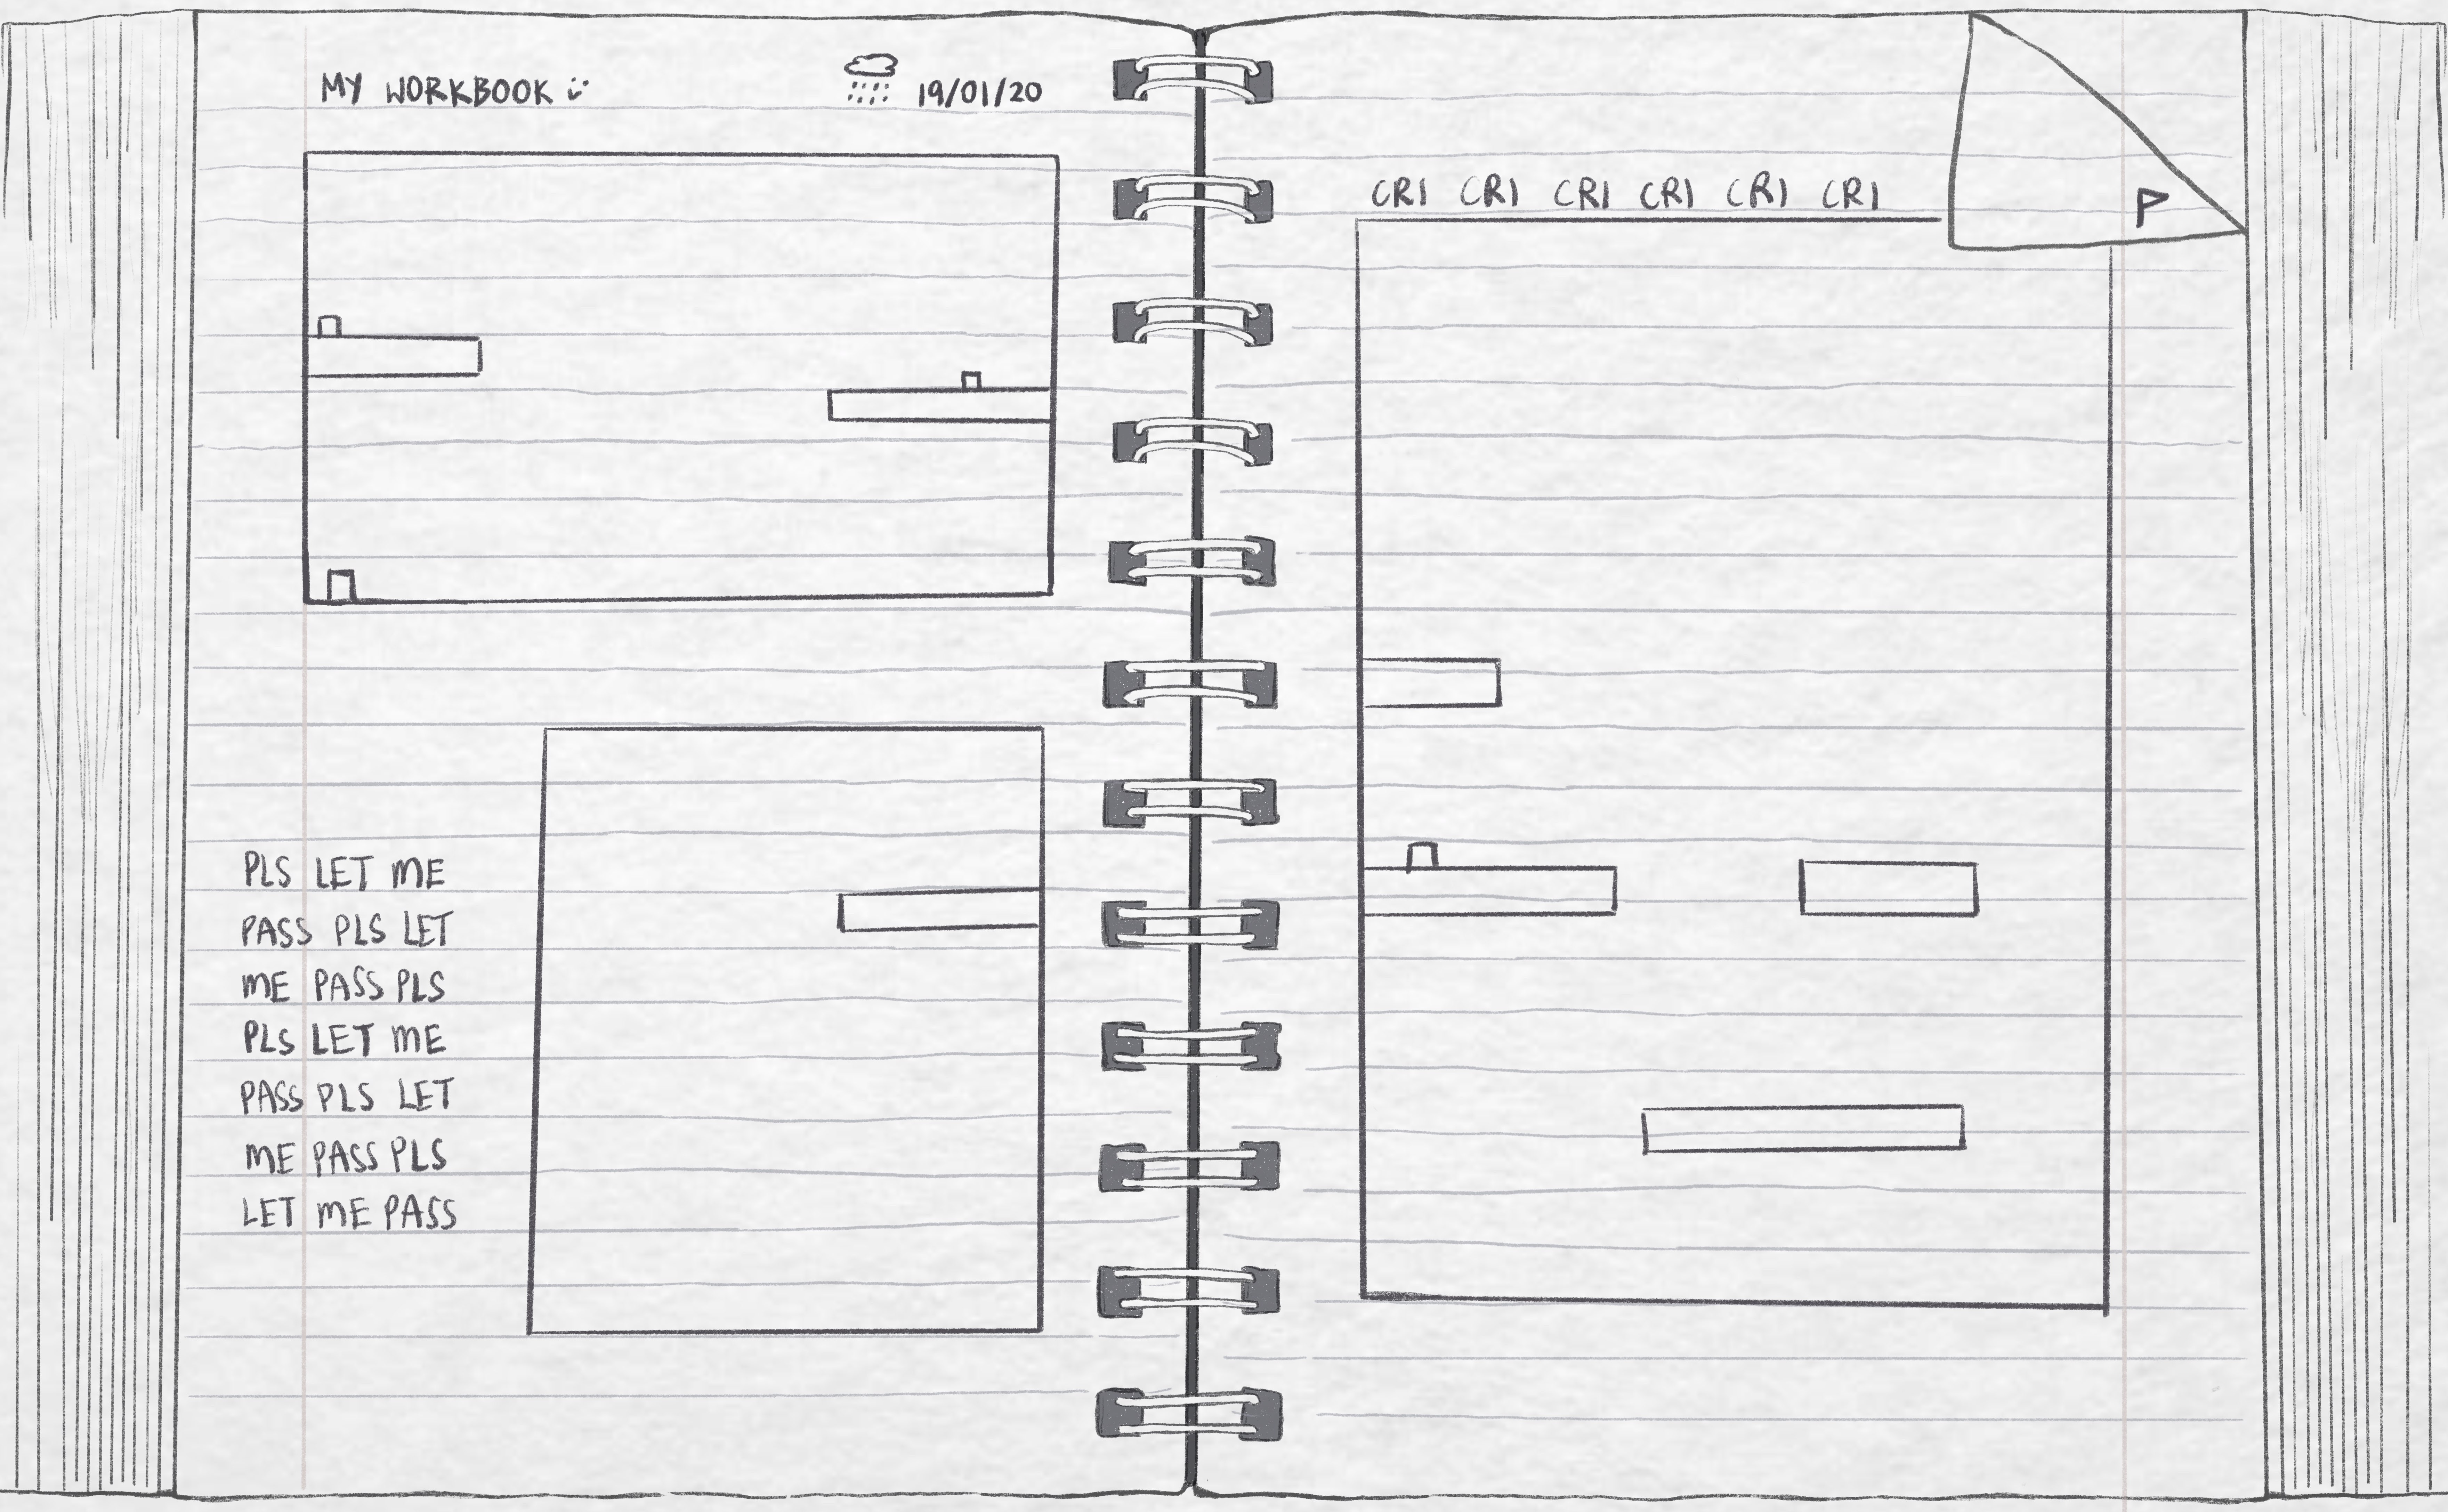 MY WORKBOOK :)
19/01/20
PLS LET ME
PASS PLS LET
ME PASS PLS
PLS LET ME
PASS PLS LET
ME PASS PLS
LET ME PASS
CRI CRI CRI CRI CRI CRI
P